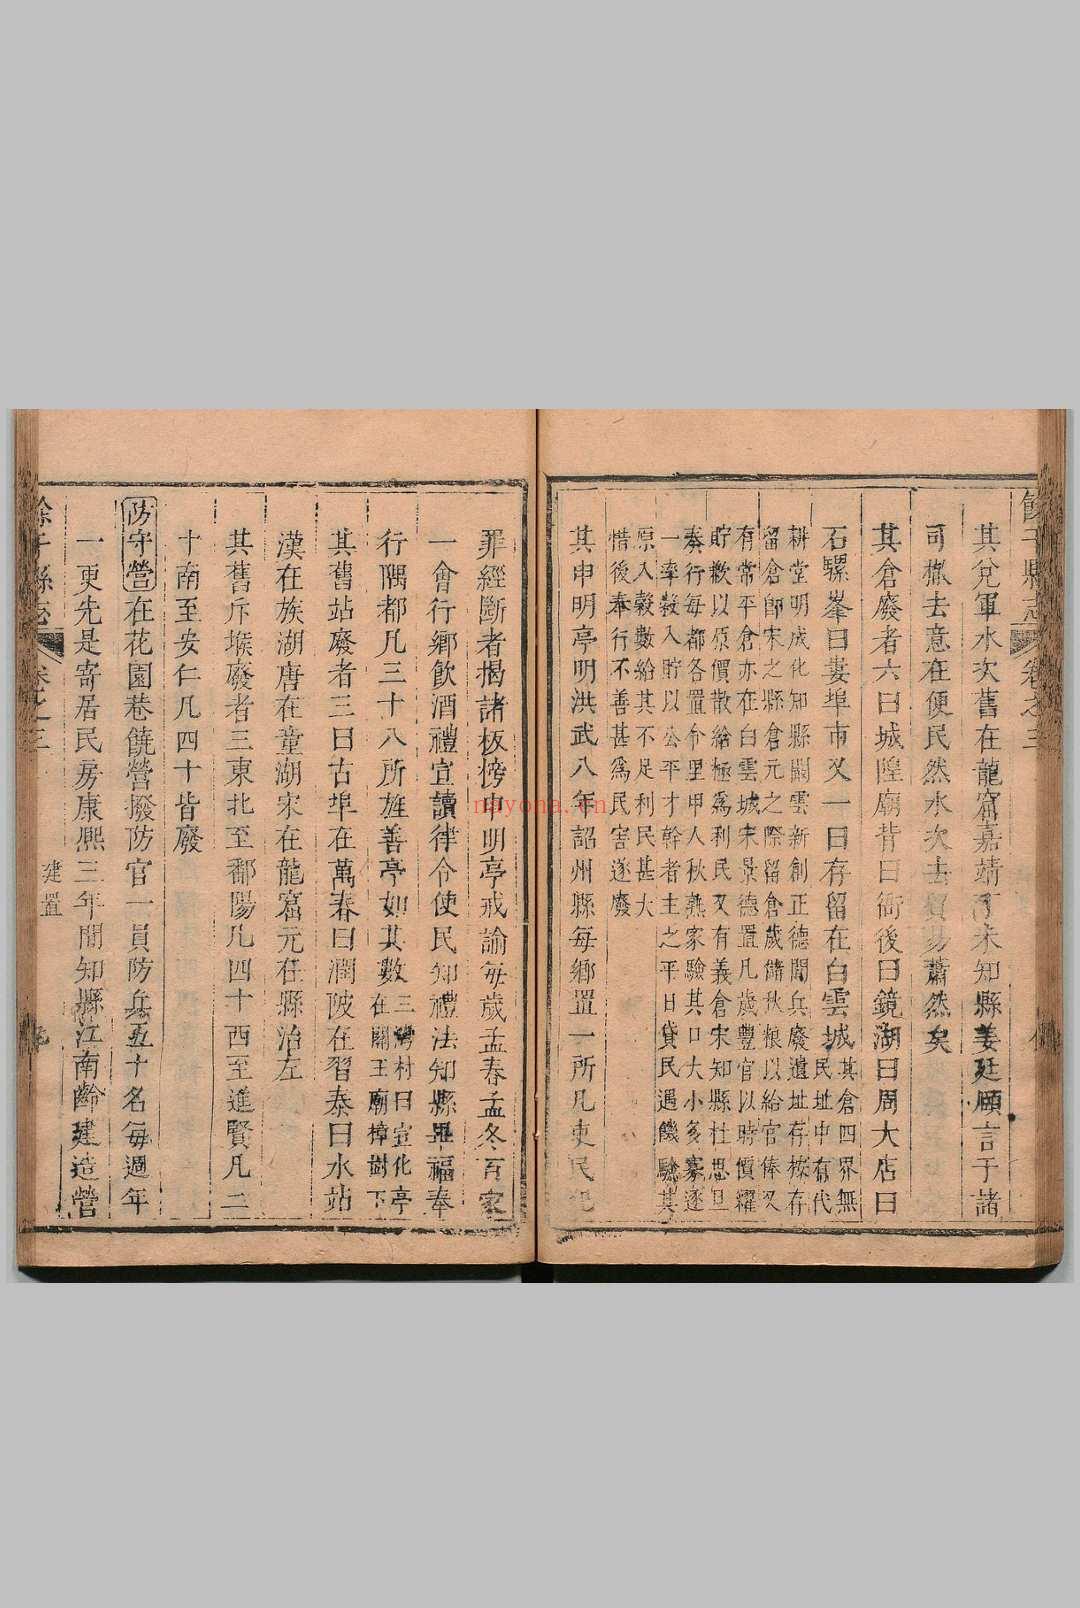 餘干縣志 卷之三
其兌軍水次舊在龍窟嘉靖 未知縣姜廷頤言于諸
司橄去意在便民然水次去貿易蕭然矣
其倉廢者六曰城隍廟背曰衙後曰鏡湖曰周大店曰
石騾峯曰婁埠市又一曰存留在白雲城
其倉四界無
民址中有代
耕堂明成化知縣闞雲新創正德間兵廢遺址存按存
留倉卽宋之縣倉元之際留倉歲儲秋粮以給官俸又
有常平倉亦在白雲城宋景德置凡歲豐官以時價糴
貯歉以原價散給極爲利民又有義倉宋知縣杜思旦
奉行每都各置倉里甲人秋熟家驗其口大小多寡逐
一率穀入貯以公平才幹者主之平日貸民遇饑驗其
原入穀數給其不足利民甚大
惜後奉行不善甚爲民害遂廢
其申明亭明洪武八年詔州縣每鄉置一所凡吏民犯
罪經斷者揭諸板榜申明亭戒諭每歲孟春孟冬百家
一會行鄉飲酒禮宣讀律令使民知禮法知縣畢福奉
行隅都凡三十八所旌善亭如其數
三灣村曰宣化亭
在關王廟樟樹下
其舊站廢者三曰古埠在萬春曰潤陂在習泰曰水站
漢在族湖唐在童湖宋在龍窟元在縣治左
其舊斥堠廢者三東北至鄱陽凡四十西至進賢凡二
十南至安仁凡四十皆廢
防守營在花園巷饒營撥防官一員防兵五十名每週年
一更先是寄居民房康熙三年間知縣江南齡建造營
餘干縣志 卷之三 建置
nayona.cn